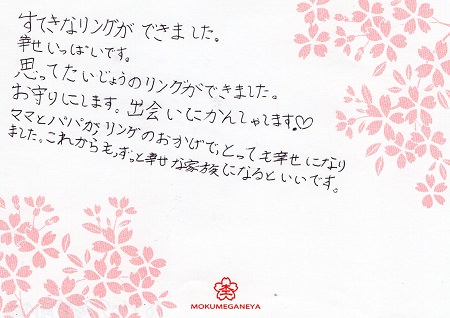 すてきなリングができました。
幸せいっぱいです。
思ってたいじょうのリングができました。
お守りにします。出会いにかんしゃしてます。♡
ママとパパが、リングのおかげで、とっても幸せになり
ました。これからも、ずっと幸せな家族になるといいです。
MOKUMEGANEYA